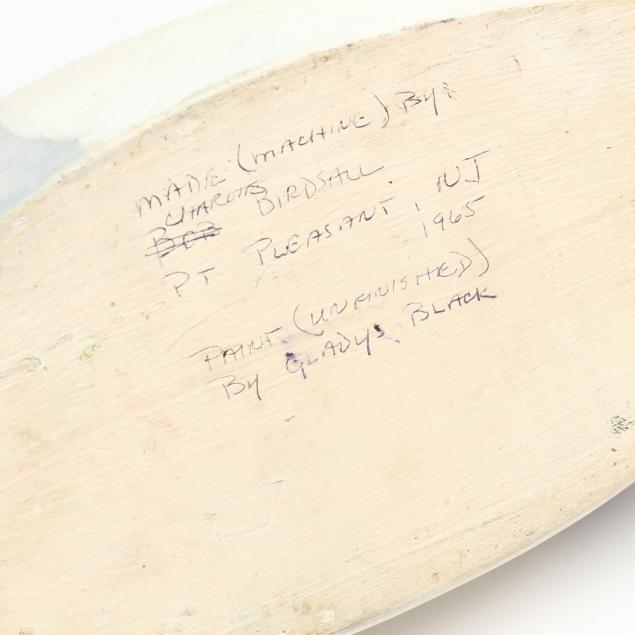 MADE (MACHINE) BY
CHARLES
BOB BIRDSALL
PT PLEASANT, NJ
1965
PAINT (UNFINISHED)
BY GLADYS BLACK